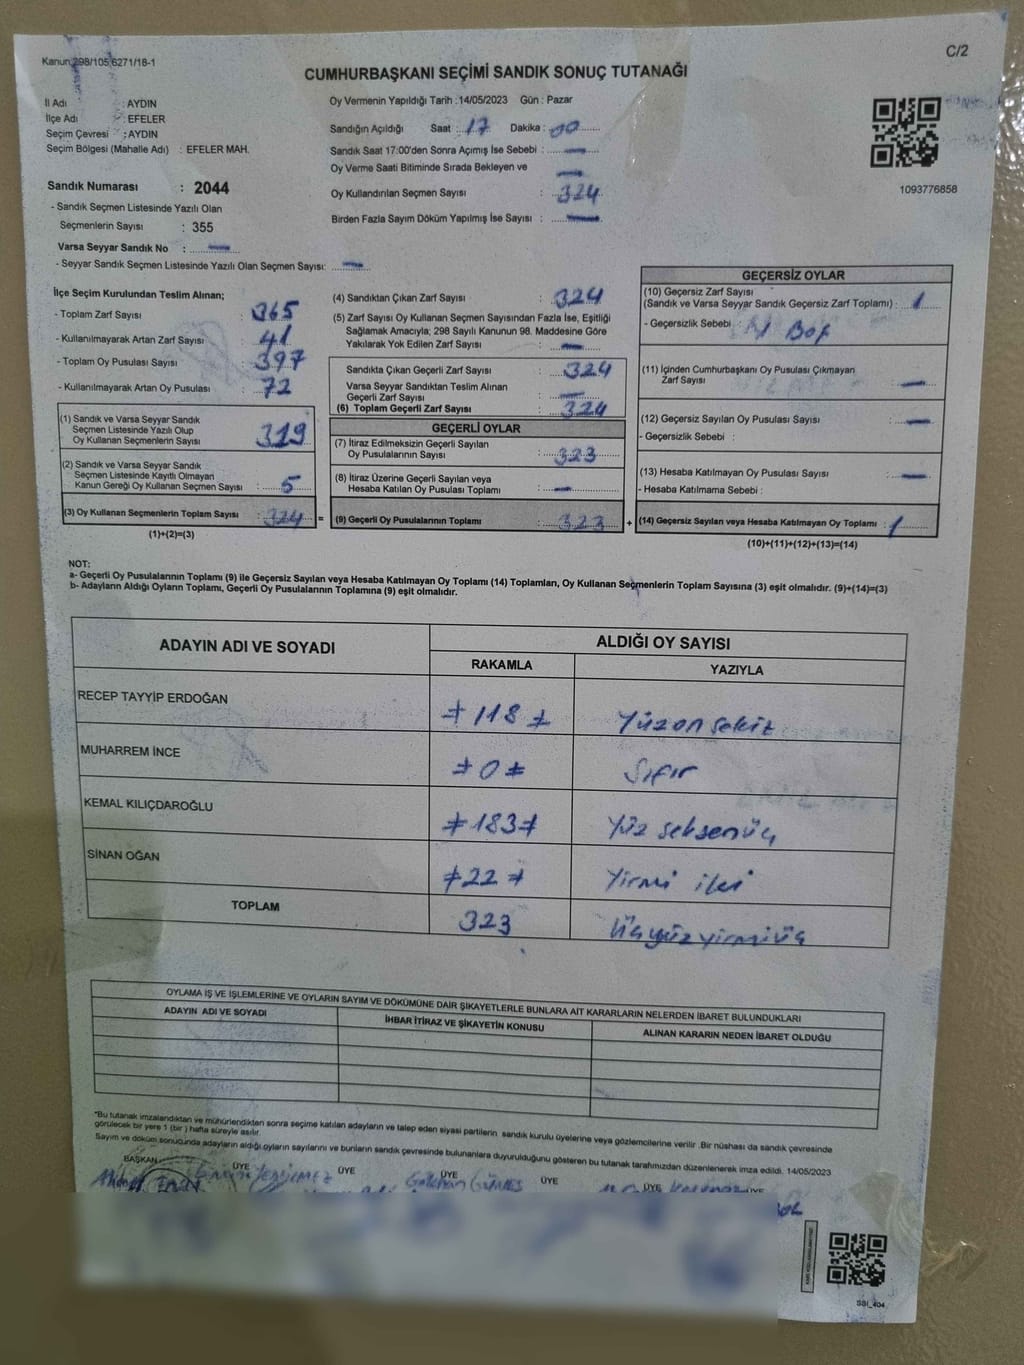 C/2
Kanun 298/105,6271/18-1
CUMHURBAŞKANI SEÇİMİ SANDIK SONUÇ TUTANAĞI
İl Adı : AYDIN
İlçe Adı : EFELER
Seçim Çevresi : AYDIN
Seçim Bölgesi (Mahalle Adı) : EFELER MAH.
Sandık Numarası : 2044
- Sandık Seçmen Listesinde Yazılı Olan
Seçmenlerin Sayısı : 355
Varsa Seyyar Sandık No : —
- Seyyar Sandık Seçmen Listesinde Yazılı Olan Seçmen Sayısı: —
Oy Vermenin Yapıldığı Tarih : 14/05/2023 Gün : Pazar
Sandığın Açıldığı Saat : 17 Dakika : 00
Sandık Saat 17:00'den Sonra Açımış İse Sebebi : —
Oy Verme Saati Bitiminde Sırada Bekleyen ve —
Oy Kullandırılan Seçmen Sayısı : 324
Birden Fazla Sayım Döküm Yapılmış İse Sayısı : —
1093776858
İlçe Seçim Kurulundan Teslim Alınan;
- Toplam Zarf Sayısı : 365
- Kullanılmayarak Artan Zarf Sayısı : 41
- Toplam Oy Pusulası Sayısı : 397
- Kullanılmayarak Artan Oy Pusulası : 72
(1) Sandık ve Varsa Seyyar Sandık
Seçmen Listesinde Yazılı Olup
Oy Kullanan Seçmenlerin Sayısı : 319
(2) Sandık ve Varsa Seyyar Sandık
Seçmen Listesinde Kayıtlı Olmayan
Kanun Gereği Oy Kullanan Seçmen Sayısı : 5
(3) Oy Kullanan Seçmenlerin Toplam Sayısı : 324 =
(1)+(2)=(3)
(4) Sandıktan Çıkan Zarf Sayısı : 324
(5) Zarf Sayısı Oy Kullanan Seçmen Sayısından Fazla İse, Eşitliği
Sağlamak Amacıyla; 298 Sayılı Kanunun 98. Maddesine Göre
Yakılarak Yok Edilen Zarf Sayısı : —
Sandıkta Çıkan Geçerli Zarf Sayısı : 324
Varsa Seyyar Sandıktan Teslim Alınan
Geçerli Zarf Sayısı : —
(6) Toplam Geçerli Zarf Sayısı : 324
GEÇERLİ OYLAR
(7) İtiraz Edilmeksizin Geçerli Sayılan
Oy Pusulalarının Sayısı : 323
(8) İtiraz Üzerine Geçerli Sayılan veya
Hesaba Katılan Oy Pusulası Toplamı : —
(9) Geçerli Oy Pusulalarının Toplamı : 323 +
GEÇERSİZ OYLAR
(10) Geçersiz Zarf Sayısı
(Sandık ve Varsa Seyyar Sandık Geçersiz Zarf Toplamı) : 1
- Geçersizlik Sebebi : 1 Boş
(11) İçinden Cumhurbaşkanı Oy Pusulası Çıkmayan
Zarf Sayısı : —
(12) Geçersiz Sayılan Oy Pusulası Sayısı : —
- Geçersizlik Sebebi :
(13) Hesaba Katılmayan Oy Pusulası Sayısı : —
- Hesaba Katılmama Sebebi :
(14) Geçersiz Sayılan veya Hesaba Katılmayan Oy Toplamı : 1
(10)+(11)+(12)+(13)=(14)
NOT:
a- Geçerli Oy Pusulalarının Toplamı (9) ile Geçersiz Sayılan veya Hesaba Katılmayan Oy Toplamı (14) Toplamları, Oy Kullanan Seçmenlerin Toplam Sayısına (3) eşit olmalıdır. (9)+(14)=(3)
b- Adayların Aldığı Oyların Toplamı, Geçerli Oy Pusulalarının Toplamına (9) eşit olmalıdır.
ADAYIN ADI VE SOYADI ALDIĞI OY SAYISI
RAKAMLA YAZIYLA
RECEP TAYYİP ERDOĞAN 118 Yüzonsekiz
MUHARREM İNCE 0 Sıfır
KEMAL KILIÇDAROĞLU 183 Yüz seksenüç
SİNAN OĞAN 22 Yirmi iki
TOPLAM 323 Üçyüzyirmiüç
OYLAMA İŞ VE İŞLEMLERİNE VE OYLARIN SAYIM VE DÖKÜMÜNE DAİR ŞİKAYETLERLE BUNLARA AİT KARARLARIN NELERDEN İBARET BULUNDUKLARI
ADAYIN ADI VE SOYADI İHBAR İTİRAZ VE ŞİKAYETİN KONUSU ALINAN KARARIN NEDEN İBARET OLDUĞU
*Bu tutanak imzalandıktan ve mühürlendikten sonra seçime katılan adayların ve talep eden siyasi partilerin sandık kurulu üyelerine veya gözlemcilerine verilir .Bir nüshası da sandık çevresinde
görülecek bir yere 1 (bir ) hafta süreyle asılır.
Sayım ve döküm sonucunda adayların aldığı oyların sayılarını ve bunların sandık çevresinde bulunanlara duyurulduğunu gösteren bu tutanak tarafımızdan düzenlenerek imza edildi. 14/05/2023
BAŞKAN ÜYE ÜYE ÜYE ÜYE ÜYE ÜYE
Gökhan
SSI_404